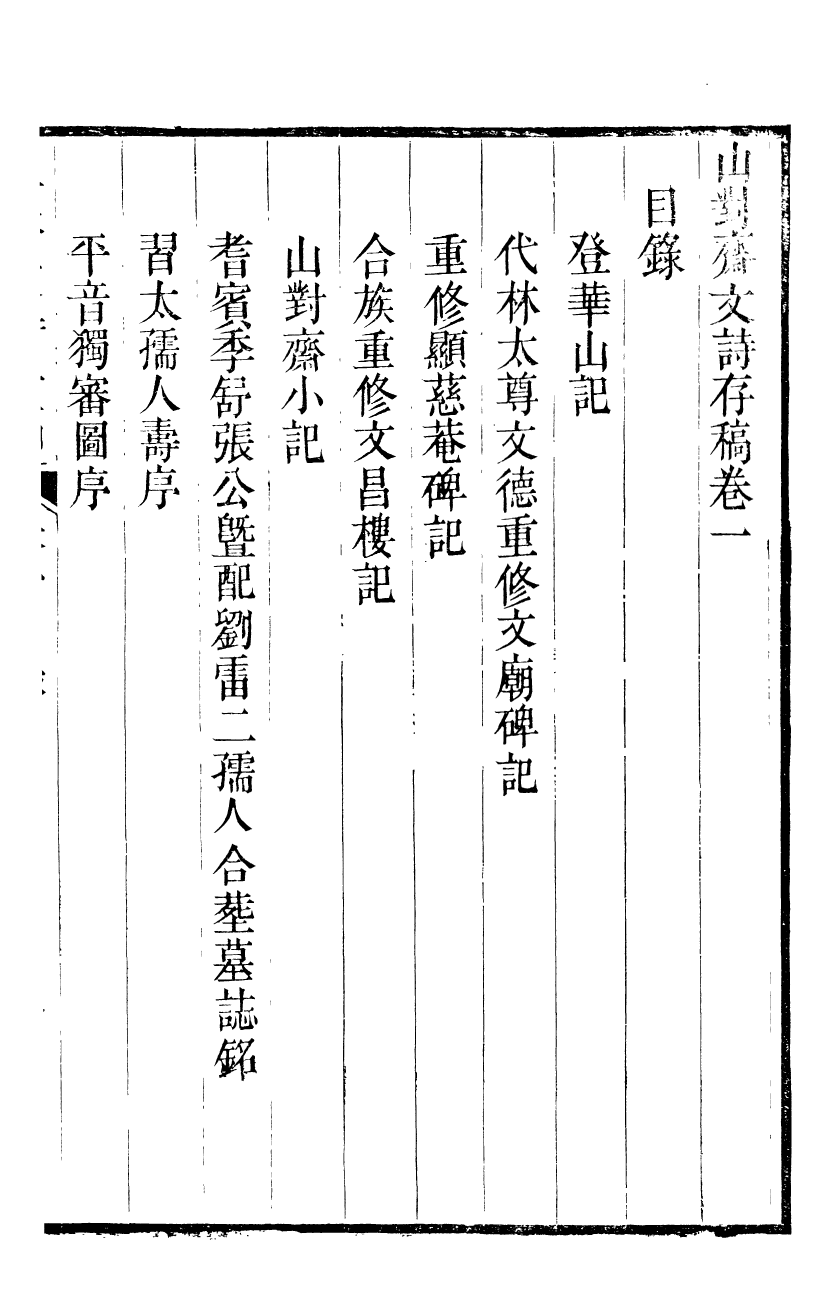 山對齋文詩存稿卷一
目錄
登華山記
代林太尊文德重修文廟碑記
重修顯慈菴碑記
合族重修文昌樓記
山對齋小記
耆賓季舒張公曁配劉雷二孺人合塟墓誌銘
習太孺人壽序
平音獨審圖序